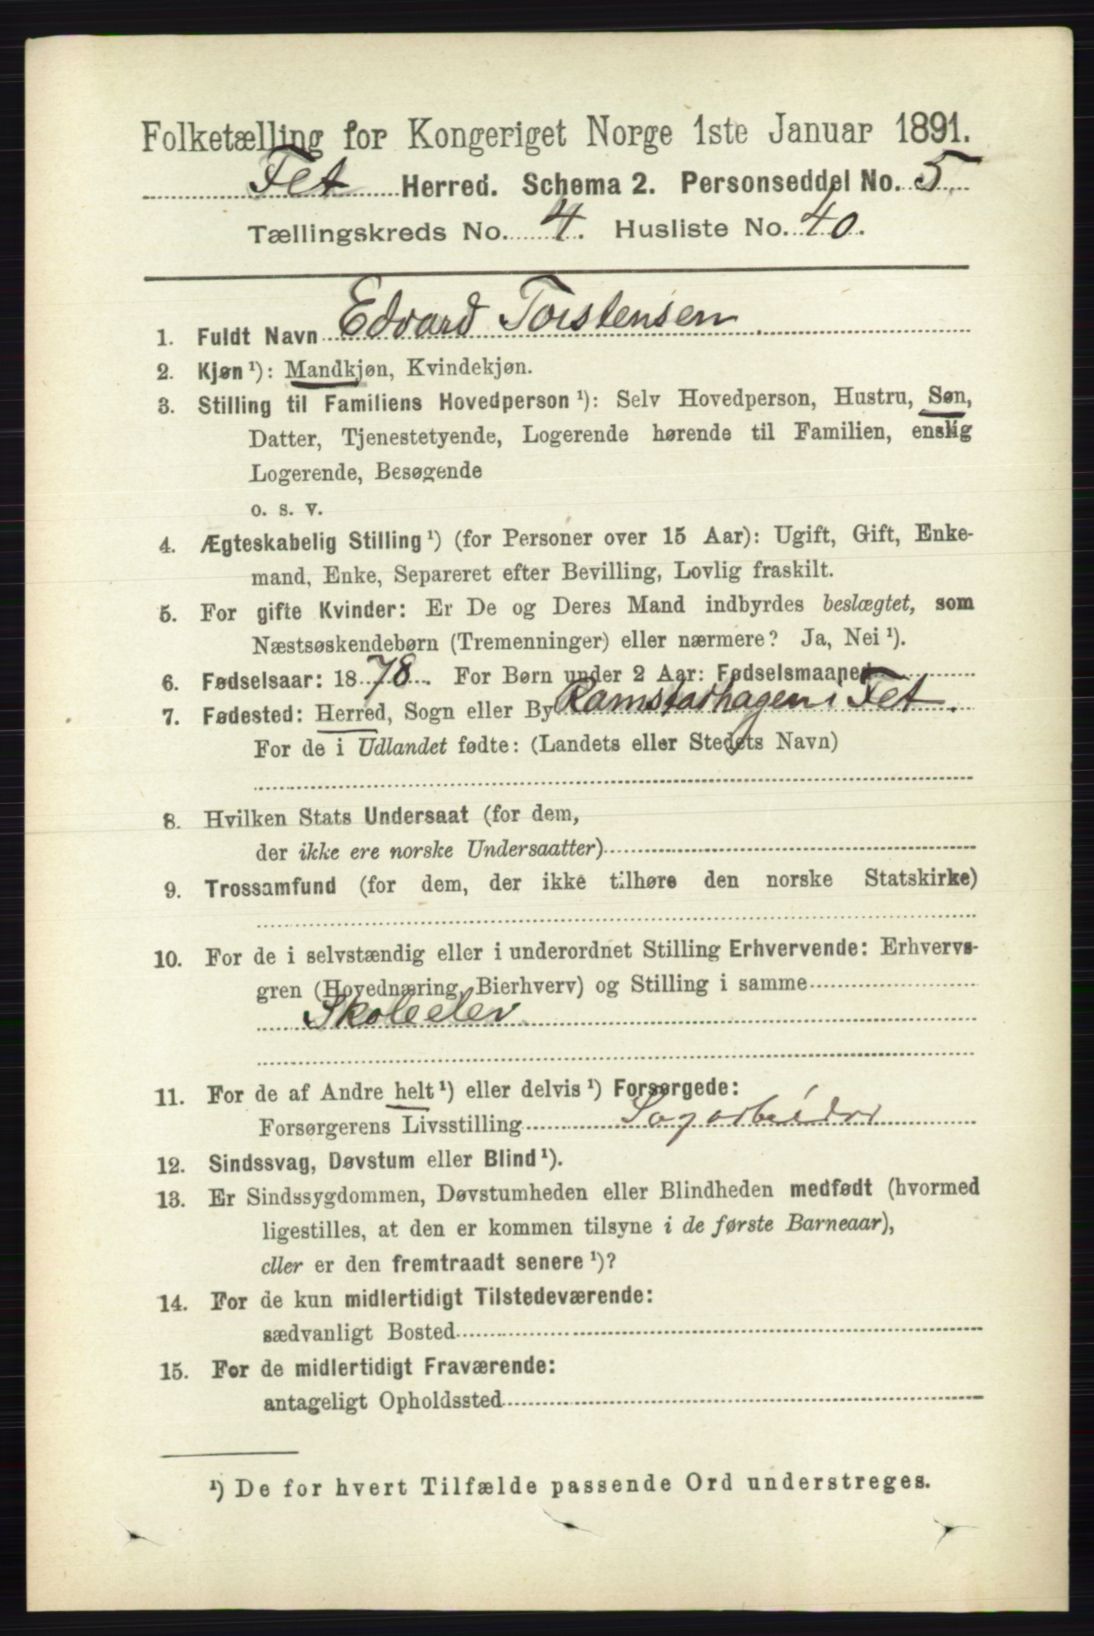 Folketælling for Kongeriget Norge 1ste Januar 1891.
Fet Herred. Schema 2. Personseddel No. 5.
Tællingskreds No. 4. Husliste No. 40.
1. Fuldt Navn Edvard Torstensen
2. Kjøn ¹): Mandkjøn, Kvindekjøn.
3. Stilling til Familiens Hovedperson ¹): Selv Hovedperson, Hustru, Søn,
Datter, Tjenestetyende, Logerende hørende til Familien, enslig
Logerende, Besøgende
o. s. v.
4. Ægteskabelig Stilling ¹) (for Personer over 15 Aar): Ugift, Gift, Enke-
mand, Enke, Separeret efter Bevilling, Lovlig fraskilt.
5. For gifte Kvinder: Er De og Deres Mand indbyrdes beslægtet, som
Næstsøskendebørn (Tremenninger) eller nærmere? Ja, Nei ¹).
6. Fødselsaar: 1878. For Børn under 2 Aar: Fødselsmaaned
7. Fødested: Herred, Sogn eller By Ramstadhagen i Fet.
For de i Udlandet fødte: (Landets eller Stedets Navn)
8. Hvilken Stats Undersaat (for dem,
der ikke ere norske Undersaatter)
9. Trossamfund (for dem, der ikke tilhøre den norske Statskirke)
10. For de i selvstændig eller i underordnet Stilling Erhvervende: Erhvervs-
gren (Hovednæring, Bierhverv) og Stilling i samme
Skoleelev
11. For de af Andre helt ¹) eller delvis ¹) Forsørgede:
Forsørgerens Livsstilling Sagarbeider
12. Sindssvag, Døvstum eller Blind ¹).
13. Er Sindssygdommen, Døvstumheden eller Blindheden medfødt (hvormed
ligestilles, at den er kommen tilsyne i de første Barneaar),
eller er den fremtraadt senere ¹)?
14. For de kun midlertidigt Tilstedeværende:
sædvanligt Bosted
15. For de midlertidigt Fraværende:
antageligt Opholdssted
¹) De for hvert Tilfælde passende Ord understreges.